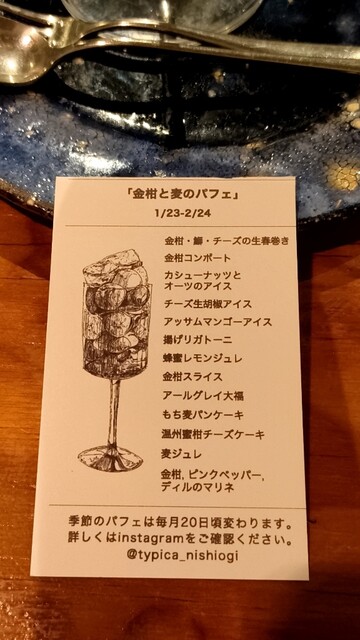 「金柑と麦のパフェ」
1/23-2/24
金柑・鰤・チーズの生春巻き
金柑コンポート
カシューナッツと
オーツのアイス
チーズ生胡椒アイス
アッサムマンゴーアイス
揚げリガトーニ
蜂蜜レモンジュレ
金柑スライス
アールグレイ大福
もち麦パンケーキ
温州蜜柑チーズケーキ
麦ジュレ
金柑, ピンクペッパー,
ディルのマリネ
季節のパフェは毎月20日頃変わります。
詳しくはinstagramをご確認ください。
@typica_nishiogi